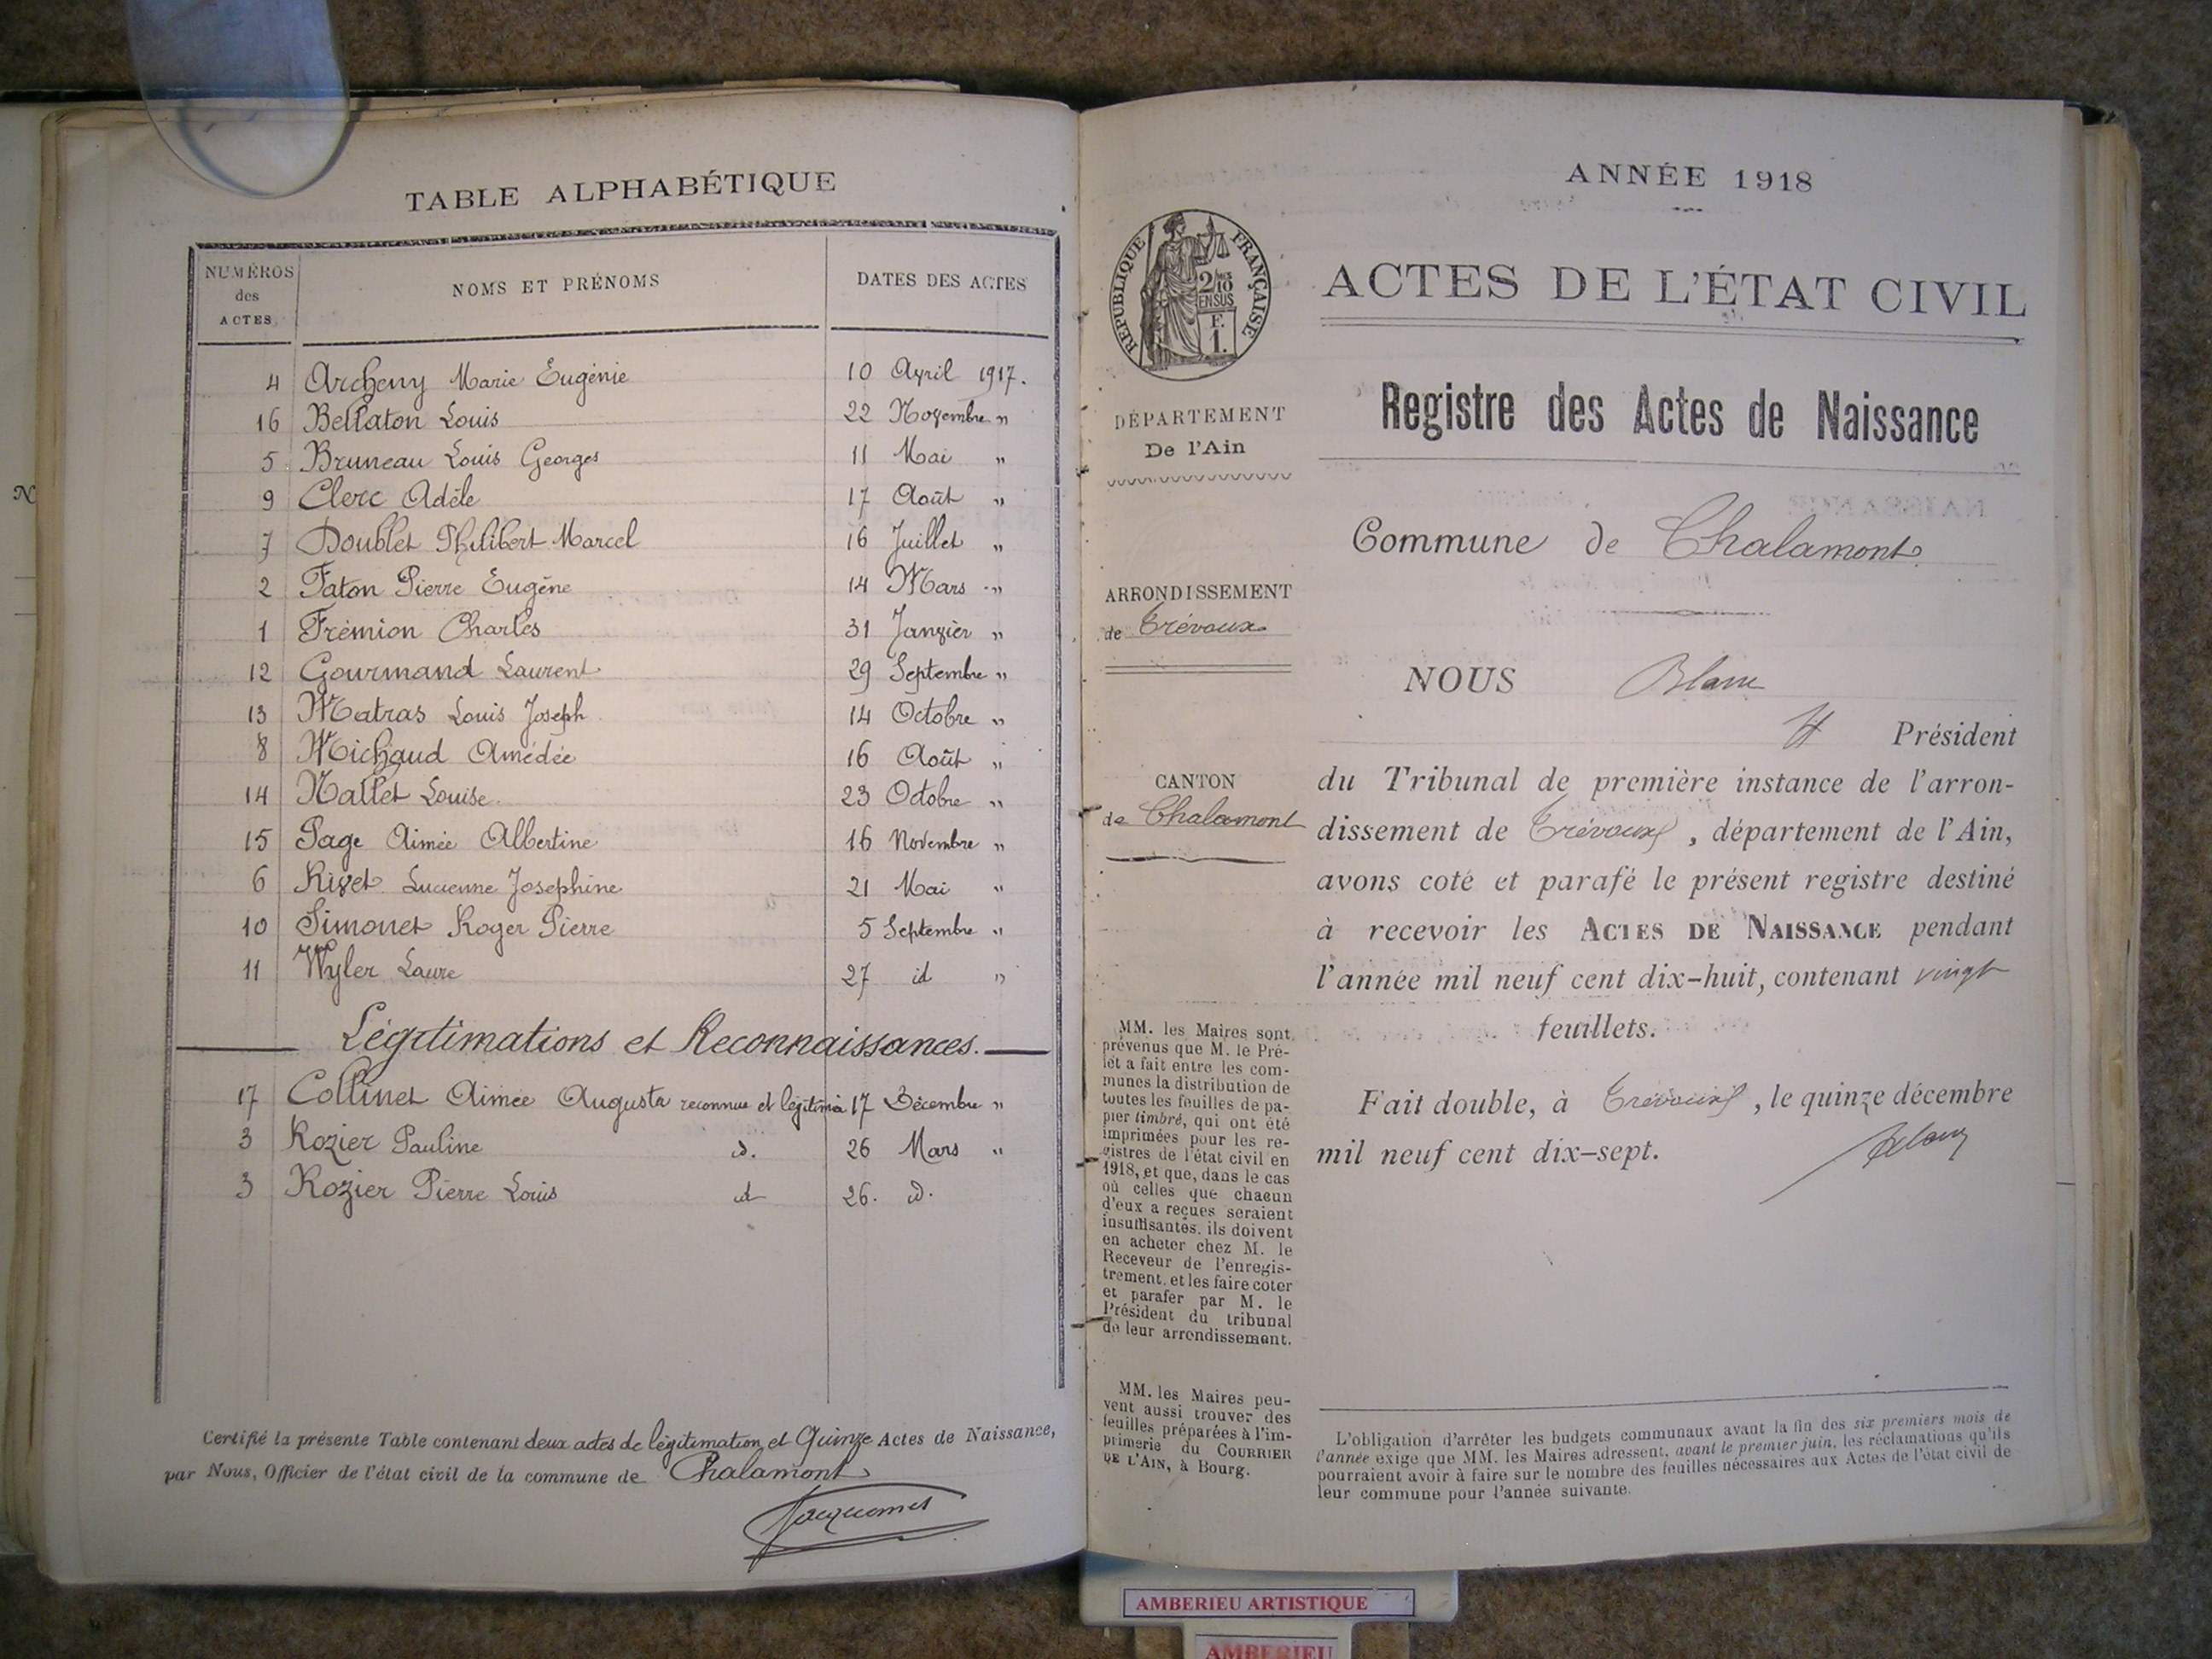 TABLE ALPHABÉTIQUE
NUMÉROS des ACTES
NOMS ET PRÉNOMS
DATES DES ACTES
4 Archeny Marie Eugénie 10 Avril 1917.
16 Bellaton Louis 22 Novembre "
5 Bruneau Louis Georges 11 Mai "
9 Clerc Adèle 17 Août "
7 Doublet Philibert Marcel 16 Juillet "
2 Faton Pierre Eugène 14 Mars "
1 Frémion Charles 31 Janvier "
12 Gourmand Laurent 29 Septembre "
13 Matras Louis Joseph 14 Octobre "
8 Michaud Amédée 16 Août "
14 Nallet Louise 23 Octobre "
15 Page Aimée Albertine 16 Novembre "
6 Rivet Lucienne Josephine 21 Mai "
10 Simonet Roger Pierre 5 Septembre "
11 Wyler Laure 27 id "
Légitimations et Reconnaissances.
17 Collinet Aimée Augusta reconnue et légitimée 17 Décembre "
3 Rozier Pauline d. 26 Mars "
3 Rozier Pierre Louis d 26. d.
Certifié la présente Table contenant deux actes de légitimation et Quinze Actes de Naissance,
par Nous, Officier de l'état civil de la commune de Chalamont
Jacquemet
RÉPUBLIQUE FRANÇAISE
2/10
EN SUS
F.
1.
DÉPARTEMENT
De l'Ain
ARRONDISSEMENT
de Trévoux
CANTON
de Chalamont
MM. les Maires sont
prévenus que M. le Pré-
fet a fait entre les com-
munes la distribution de
toutes les feuilles de pa-
pier timbré, qui ont été
imprimées pour les re-
gistres de l'état civil en
1918, et que, dans le cas
où celles que chacun
d'eux a reçues seraient
insuffisantes, ils doivent
en acheter chez M. le
Receveur de l'enregis-
trement, et les faire coter
et parafer par M. le
Président du tribunal
de leur arrondissement.
MM. les Maires peu-
vent aussi trouver des
feuilles préparées à l'im-
primerie du COURRIER
DE L'AIN, à Bourg.
ANNÉE 1918
ACTES DE L'ÉTAT CIVIL
Registre des Actes de Naissance
Commune de Chalamont
NOUS Blanc
Président
du Tribunal de première instance de l'arron-
dissement de Trévoux, département de l'Ain,
avons coté et parafé le présent registre destiné
à recevoir les ACTES DE NAISSANCE pendant
l'année mil neuf cent dix-huit, contenant vingt
feuillets.
Fait double, à Trévoux, le quinze décembre
mil neuf cent dix-sept.
L'obligation d'arrêter les budgets communaux avant la fin des six premiers mois de
l'année exige que MM. les Maires adressent, avant le premier juin, les réclamations qu'ils
pourraient avoir à faire sur le nombre des feuilles nécessaires aux Actes de l'état civil de
leur commune pour l'année suivante.
AMBERIEU ARTISTIQUE
AMBERIEU